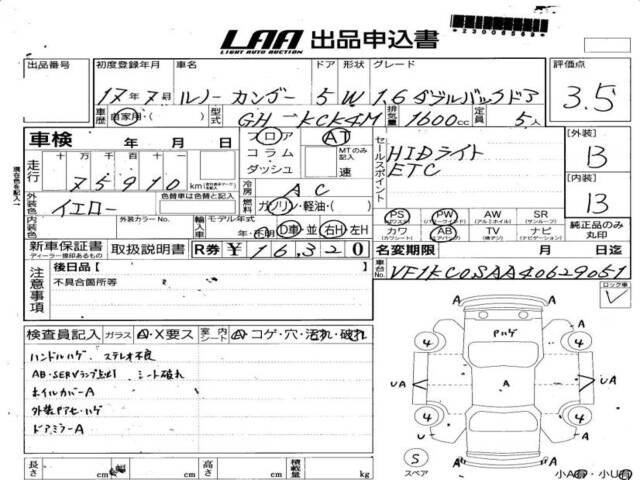 LAA 出品申込書
LIGHT AUTO AUCTION
出品番号 初度登録年月 車名 ドア 形状 グレード 評価点
17年7月 ルノー カングー 5 W 1.6 ダブルバックドア 3.5
車歴 自家用( ) 型式 GH-KCK4M 排気量 1600cc 定員 5人
車検 年 月 日
フロア コラム・ダッシュ AT MTのみ記入 速
セールスポイント
HIDライト
ETC
[外装] B
[内装] B
走行 十 万 千 百 十 一
75910 km
冷房 AC
外装色 イエロー 色替車は色替と記入
燃料 ガソリン・軽油・( )
内装色 外装カラーNo.
輸入車 モデル年式 年・不明 D車・並 右H 左H
PS PW AW SR
(パワーウインドウ) (アルミホイル) (サンルーフ)
カワ AB TV ナビ
(カワシート) (エアバッグ) (ナビゲーション)
純正品のみ丸印
新車保証書 取扱説明書 R券 ¥16,320
ディーラー捺印あるもの
名変期限 月 日
注意事項
後日品[ ]
不具合箇所等
車台No. VF1KC0SAA40629051
ロック車
検査員記入 ガラス A・X要ス 室内シート A・コゲ・穴・汚れ・破れ
ハンドルハゲ、ステレオ不良
AB・SERVランプ点灯 シート破れ
ホイルカバーA
外装PアセハゲA
ドアミラーA
Pハゲ
4 4
UA A UA
4 4
S
スペア
長さ cm 幅 cm 高さ cm 積載量 kg